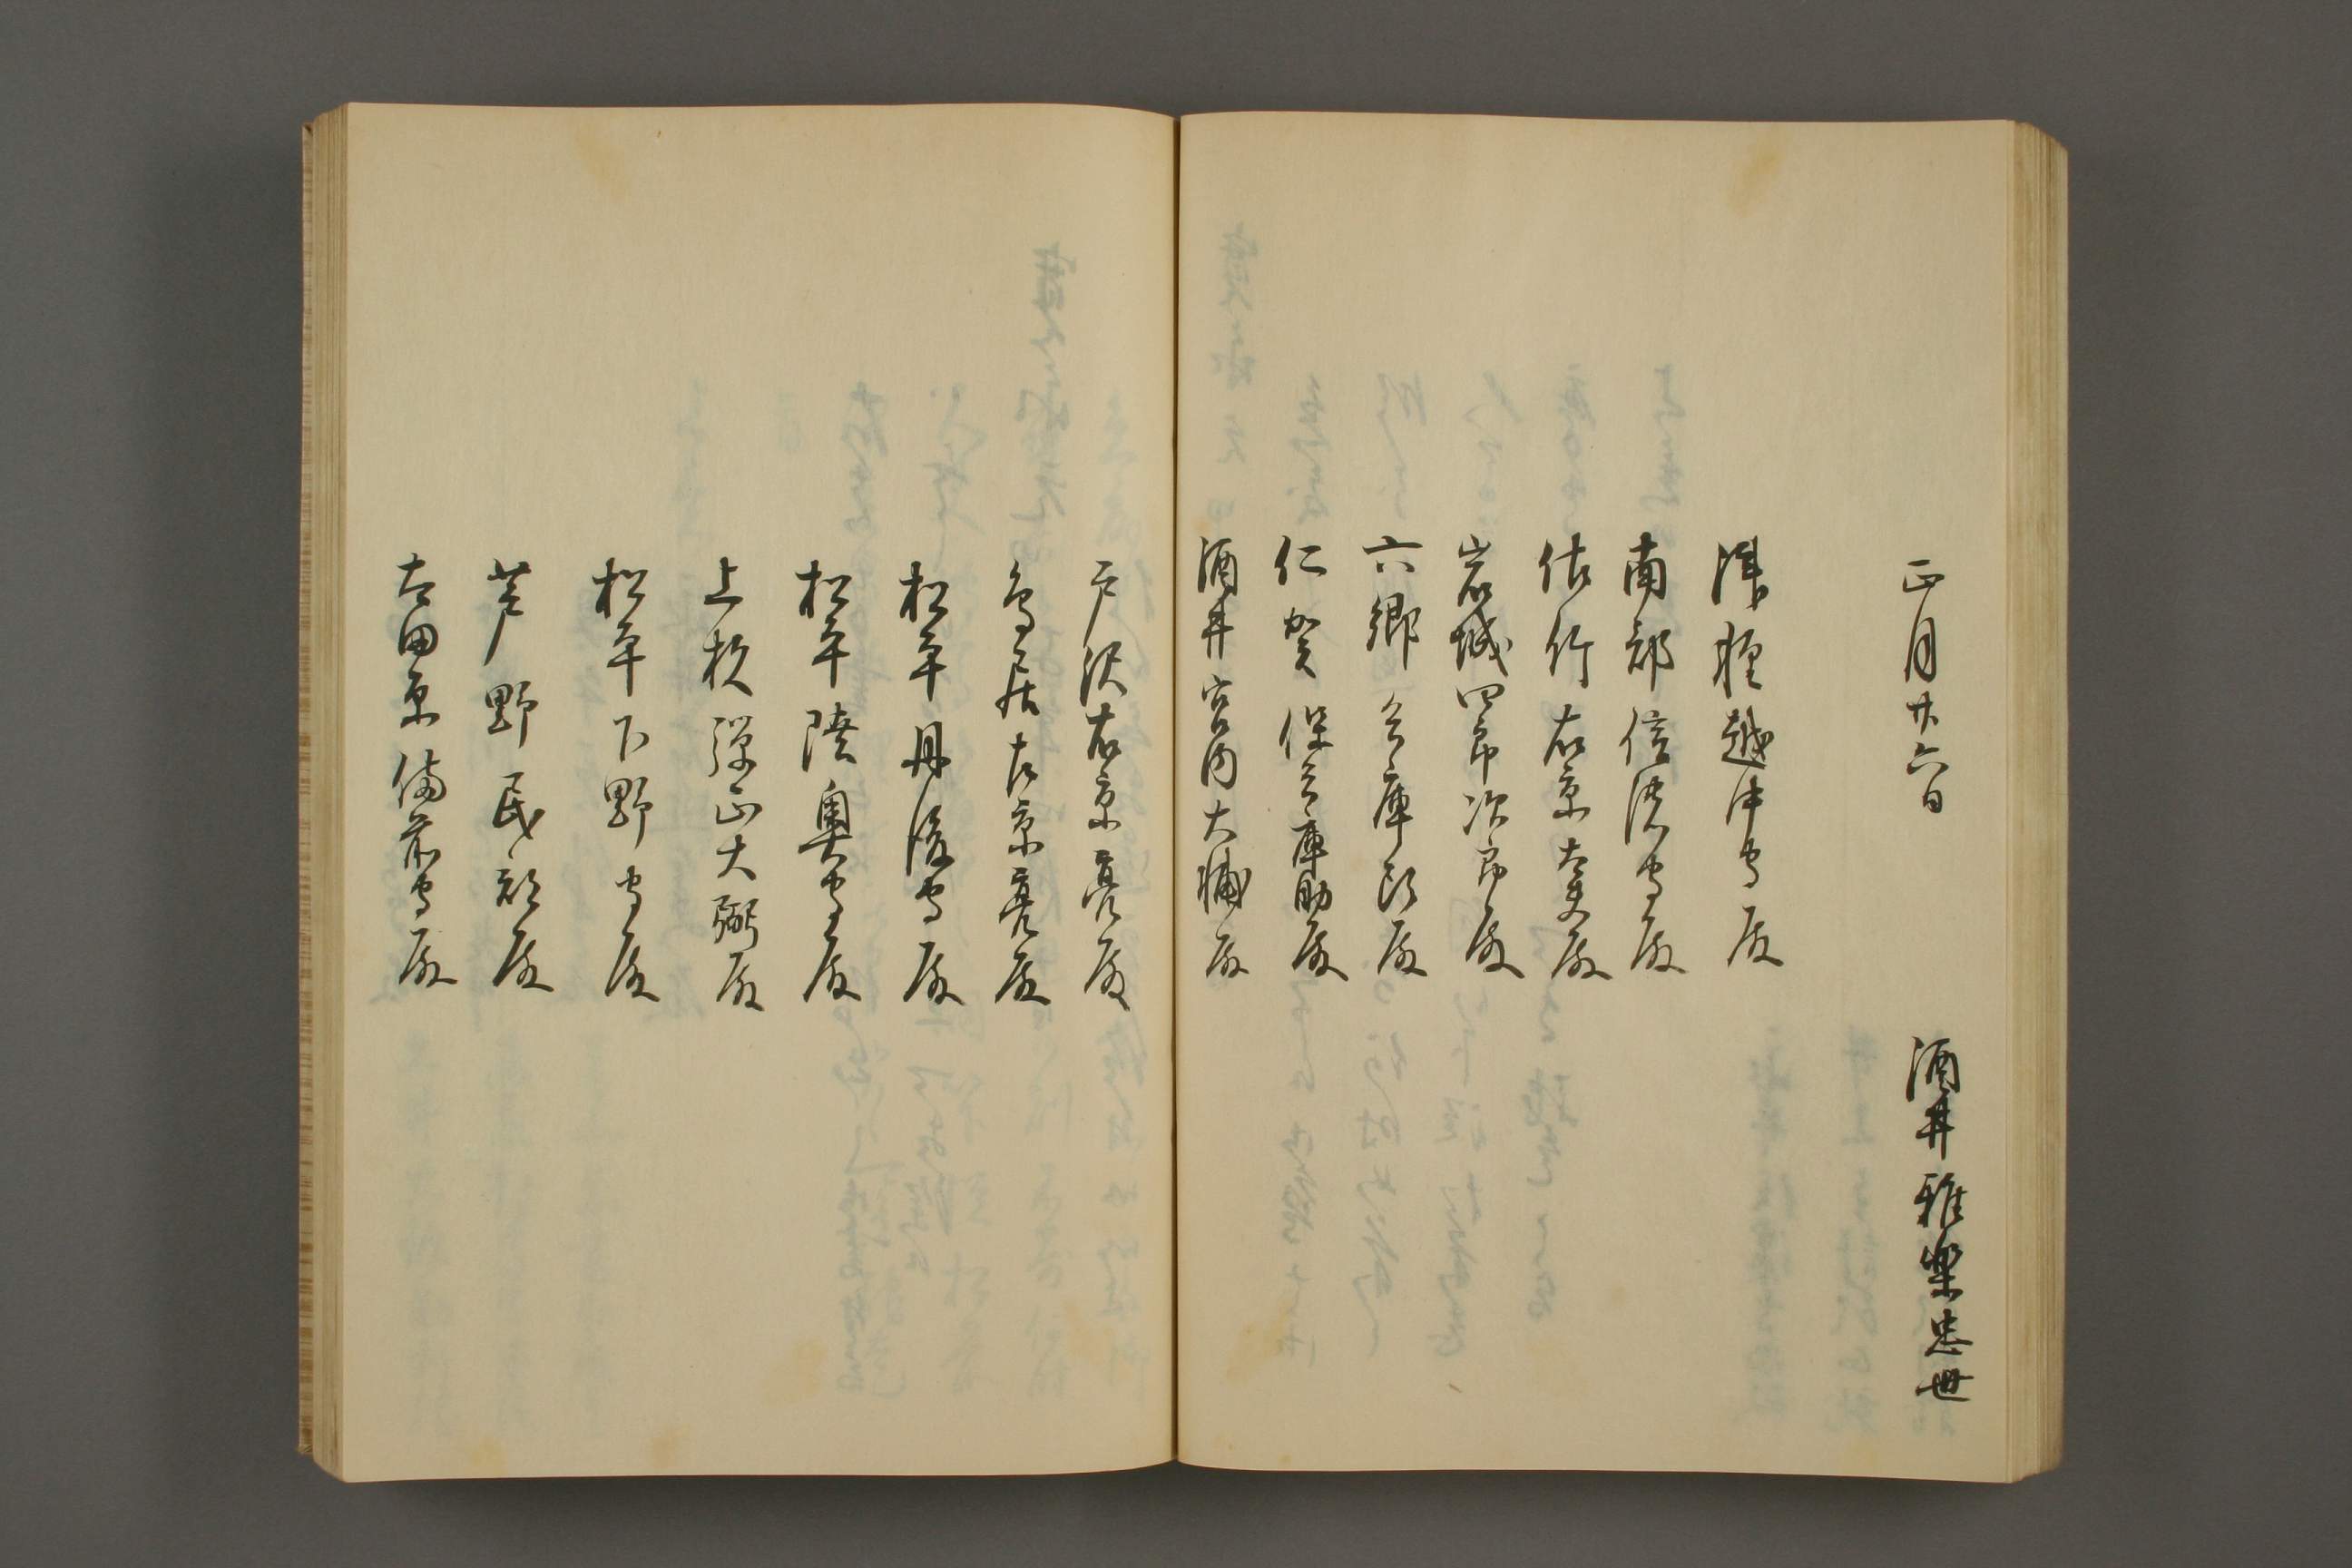 正月廿六日　酒井雅楽忠世
津軽越中守殿
南部信濃守殿
佐竹右京大夫殿
岩城四郎次郎殿
六郷兵庫頭殿
仁賀保兵庫助殿
酒井宮内大輔殿
戸沢右京亮殿
鳥居左京亮殿
松平丹後守殿
松平陸奥守殿
上杉弾正大弼殿
松平下野守殿
芦野民部殿
大田原備前守殿